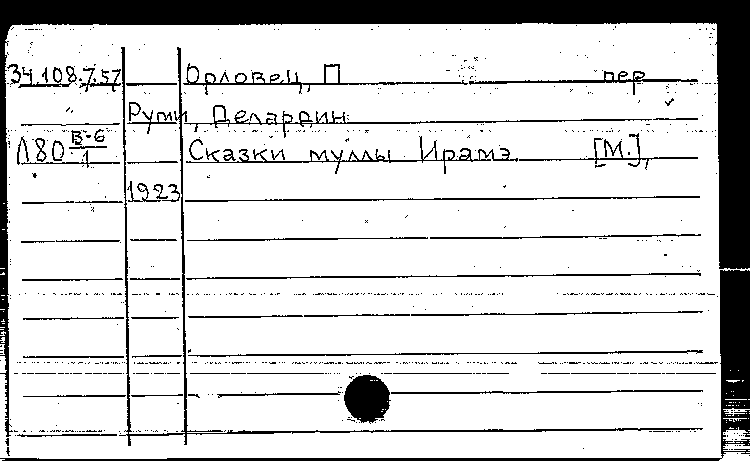 34.108.7.57 Орловец, П пер
Руми, Делардин
Л80 В-6/1 Сказки муллы Ирамэ [М.],
1923